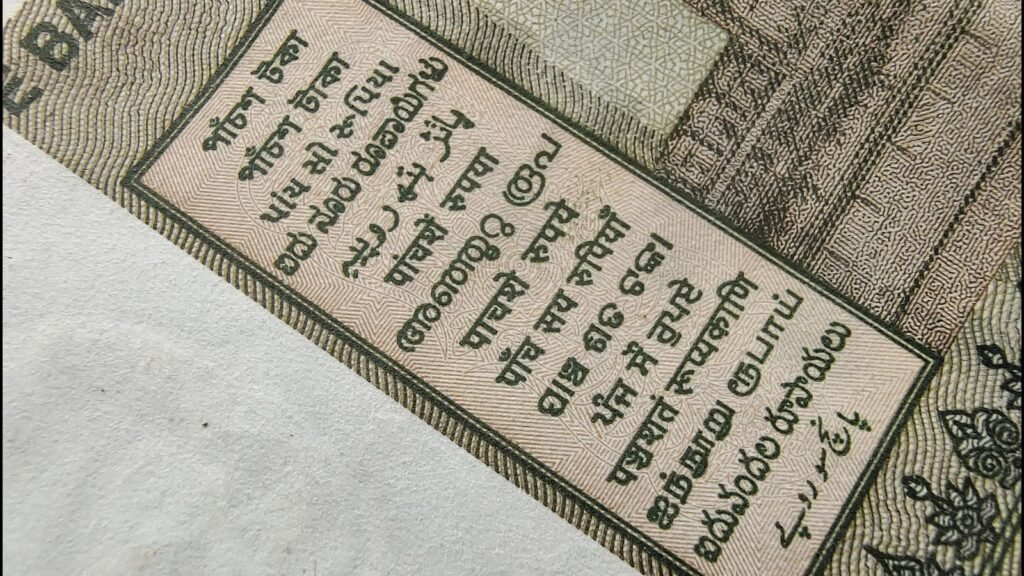 E BA
পাঁচশ টকা
পাঁচশ টাকা
પાંચ સો રૂપિયા
ಐದು ನೂರು ರೂಪಾಯಿಗಳು
पांचशें रुपया
അഞ്ഞൂറു രൂപ
पाचशे रुपये
पाँच सय रुपियाँ
ପାଞ୍ଚ ଶତ ଟଙ୍କା
ਪੰਜ ਸੌ ਰੁਪਏ
पञ्चशतं रूप्यकाणि
ஐந்நூறு ரூபாய்
ఐదువందల రూపాయలు
پانچ سو روپے